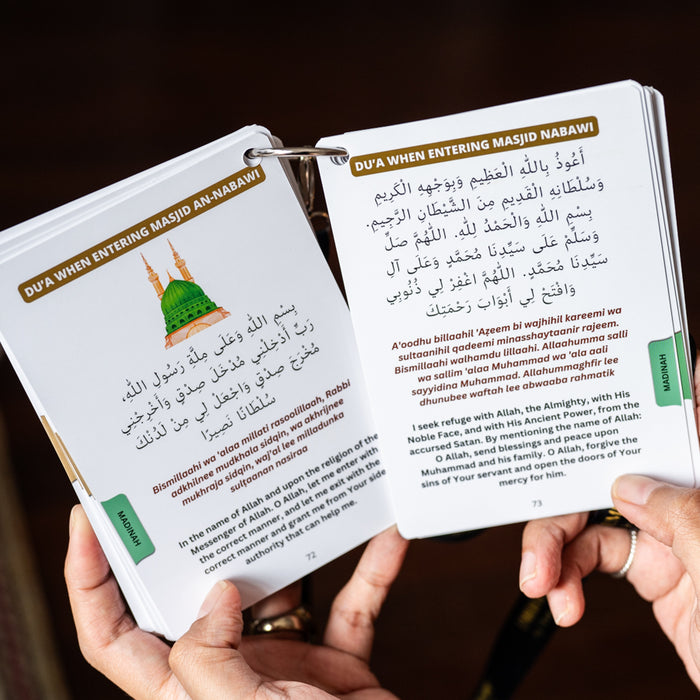 DU'A WHEN ENTERING MASJID AN-NABAWI
بِسْمِ اللهِ وَعَلَى مِلَّةِ رَسُولِ اللهِ،
رَبِّ أَدْخِلْنِي مُدْخَلَ صِدْقٍ وَأَخْرِجْنِي
مُخْرَجَ صِدْقٍ وَاجْعَلْ لِي مِنْ لَدُنْكَ
سُلْطَانًا نَصِيرًا
Bismillaahi wa 'alaa millati rasoolillaah, Rabbi
adkhilnee mudkhala sidqin, wa akhrijnee
mukhraja sidqin, waj'al lee milladunka
sultaanan nasiraa
In the name of Allah and upon the religion of the
Messenger of Allah. O Allah, let me enter with
the correct manner, and let me exit with the
correct manner and grant me from Your side
authority that can help me.
MADINAH
72
DU'A WHEN ENTERING MASJID NABAWI
أَعُوذُ بِاللهِ الْعَظِيمِ وَبِوَجْهِهِ الْكَرِيمِ
وَسُلْطَانِهِ الْقَدِيمِ مِنَ الشَّيْطَانِ الرَّجِيمِ.
بِسْمِ اللهِ وَالْحَمْدُ لِلهِ. اللهُمَّ صَلِّ
وَسَلِّمْ عَلَى سَيِّدِنَا مُحَمَّدٍ وَعَلَى آلِ
سَيِّدِنَا مُحَمَّدٍ. اللهُمَّ اغْفِرْ لِي ذُنُوبِي
وَافْتَحْ لِي أَبْوَابَ رَحْمَتِكَ
A'oodhu billaahil 'Aẓeem bi wajhihil kareemi wa
sultaanihil qadeemi minasshaytaanir rajeem.
Bismillaahi walhamdu lillaahi. Allaahumma salli
wa sallim 'alaa Muhammad wa 'ala aali
sayyidina Muhammad. Allahummaghfir lee
dhunubee waftah lee abwaaba rahmatik
I seek refuge with Allah, the Almighty, with His
Noble Face, and with His Ancient Power, from the
accursed Satan. By mentioning the name of Allah:
O Allah, send blessings and peace upon
Muhammad and his family. O Allah, forgive the
sins of Your servant and open the doors of Your
mercy for him.
MADINAH
73